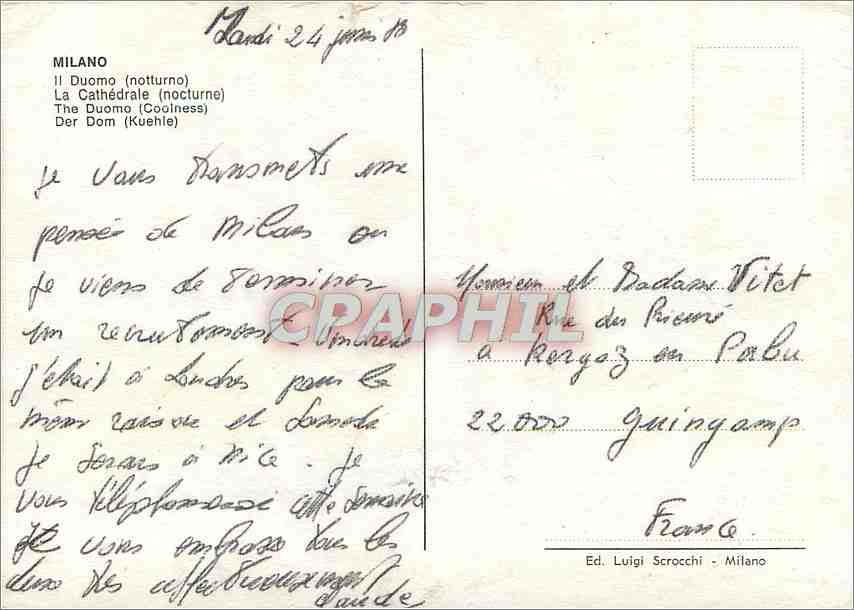 Lundi 24 juin 83
MILANO
Il Duomo (notturno)
La Cathédrale (nocturne)
The Duomo (Coolness)
Der Dom (Kuehle)
Je vous transmets une
pensée de Milan ou
je viens de terminer
un recrutement. Vendredi
j'étais à Londres pour la
même raison et Samedi
je serais à Nice. Je
vous téléphonerai cette semaine
Je vous embrasse tous les
deux très affectueusement
Claude
CPAPHIL
Monsieur et Madame Vitet
Rue du Prieuré
à Kergoz en Pabu
22000 Guingamp
France.
Ed. Luigi Scrocchi - Milano